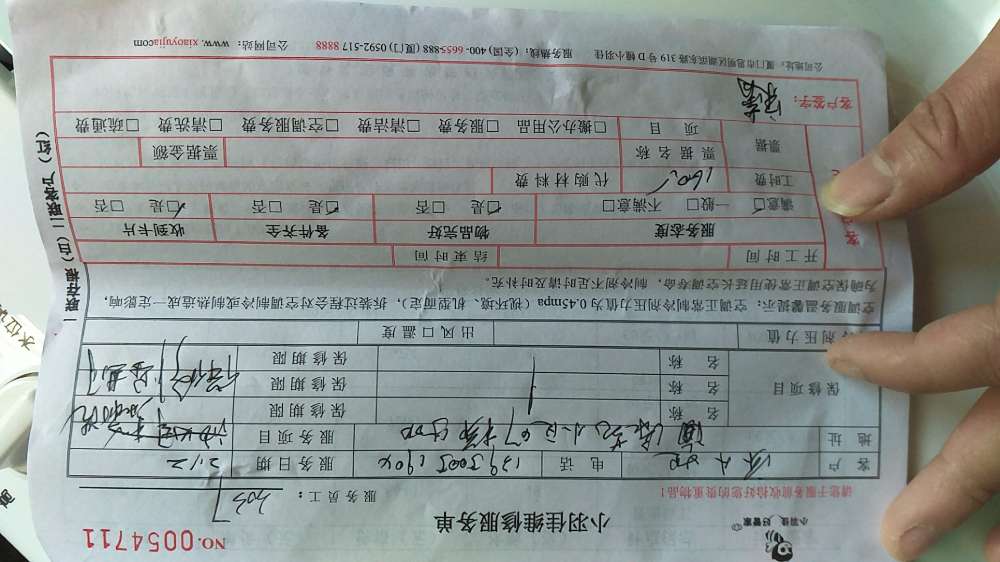 小羽佳 好管家
小羽佳维修服务单
NO.0054711
请您于服务前收拾好您的贵重物品！
服务员工：
客户 电话 服务日期 2.12
地址 服务项目
保修项目
名称 保修期限
名称 保修期限
名称 保修期限
剂压力值 出风口温度
空调服务温馨提示：空调正常制冷剂压力值为0.45mpa（视环境、机型而定），拆装过程会对空调制冷或制热造成一定影响，
为确保空调正常使用延长空调寿命，制冷剂不足时请及时补充。
开工时间 结束时间
服务态度 物品完好 备件齐全 收到卡片
满意☑ 一般□ 不满意□ ☑是 □否 ☑是 □否 ☑是 □否
工时费 160 代购材料费
票据 票据名称 票据金额
项目 □搬办公用品 □服务费 □清洁费 □空调服务费 □清洗费 □疏通费
客户签字：
公司地址：厦门市思明区湖滨东路319号D幢小羽佳 服务热线：(全国) 400-6655-888 (厦门) 0592-517 8888 公司网站：www.xiaoyujiacom
一联存根（白）二联客户（红）